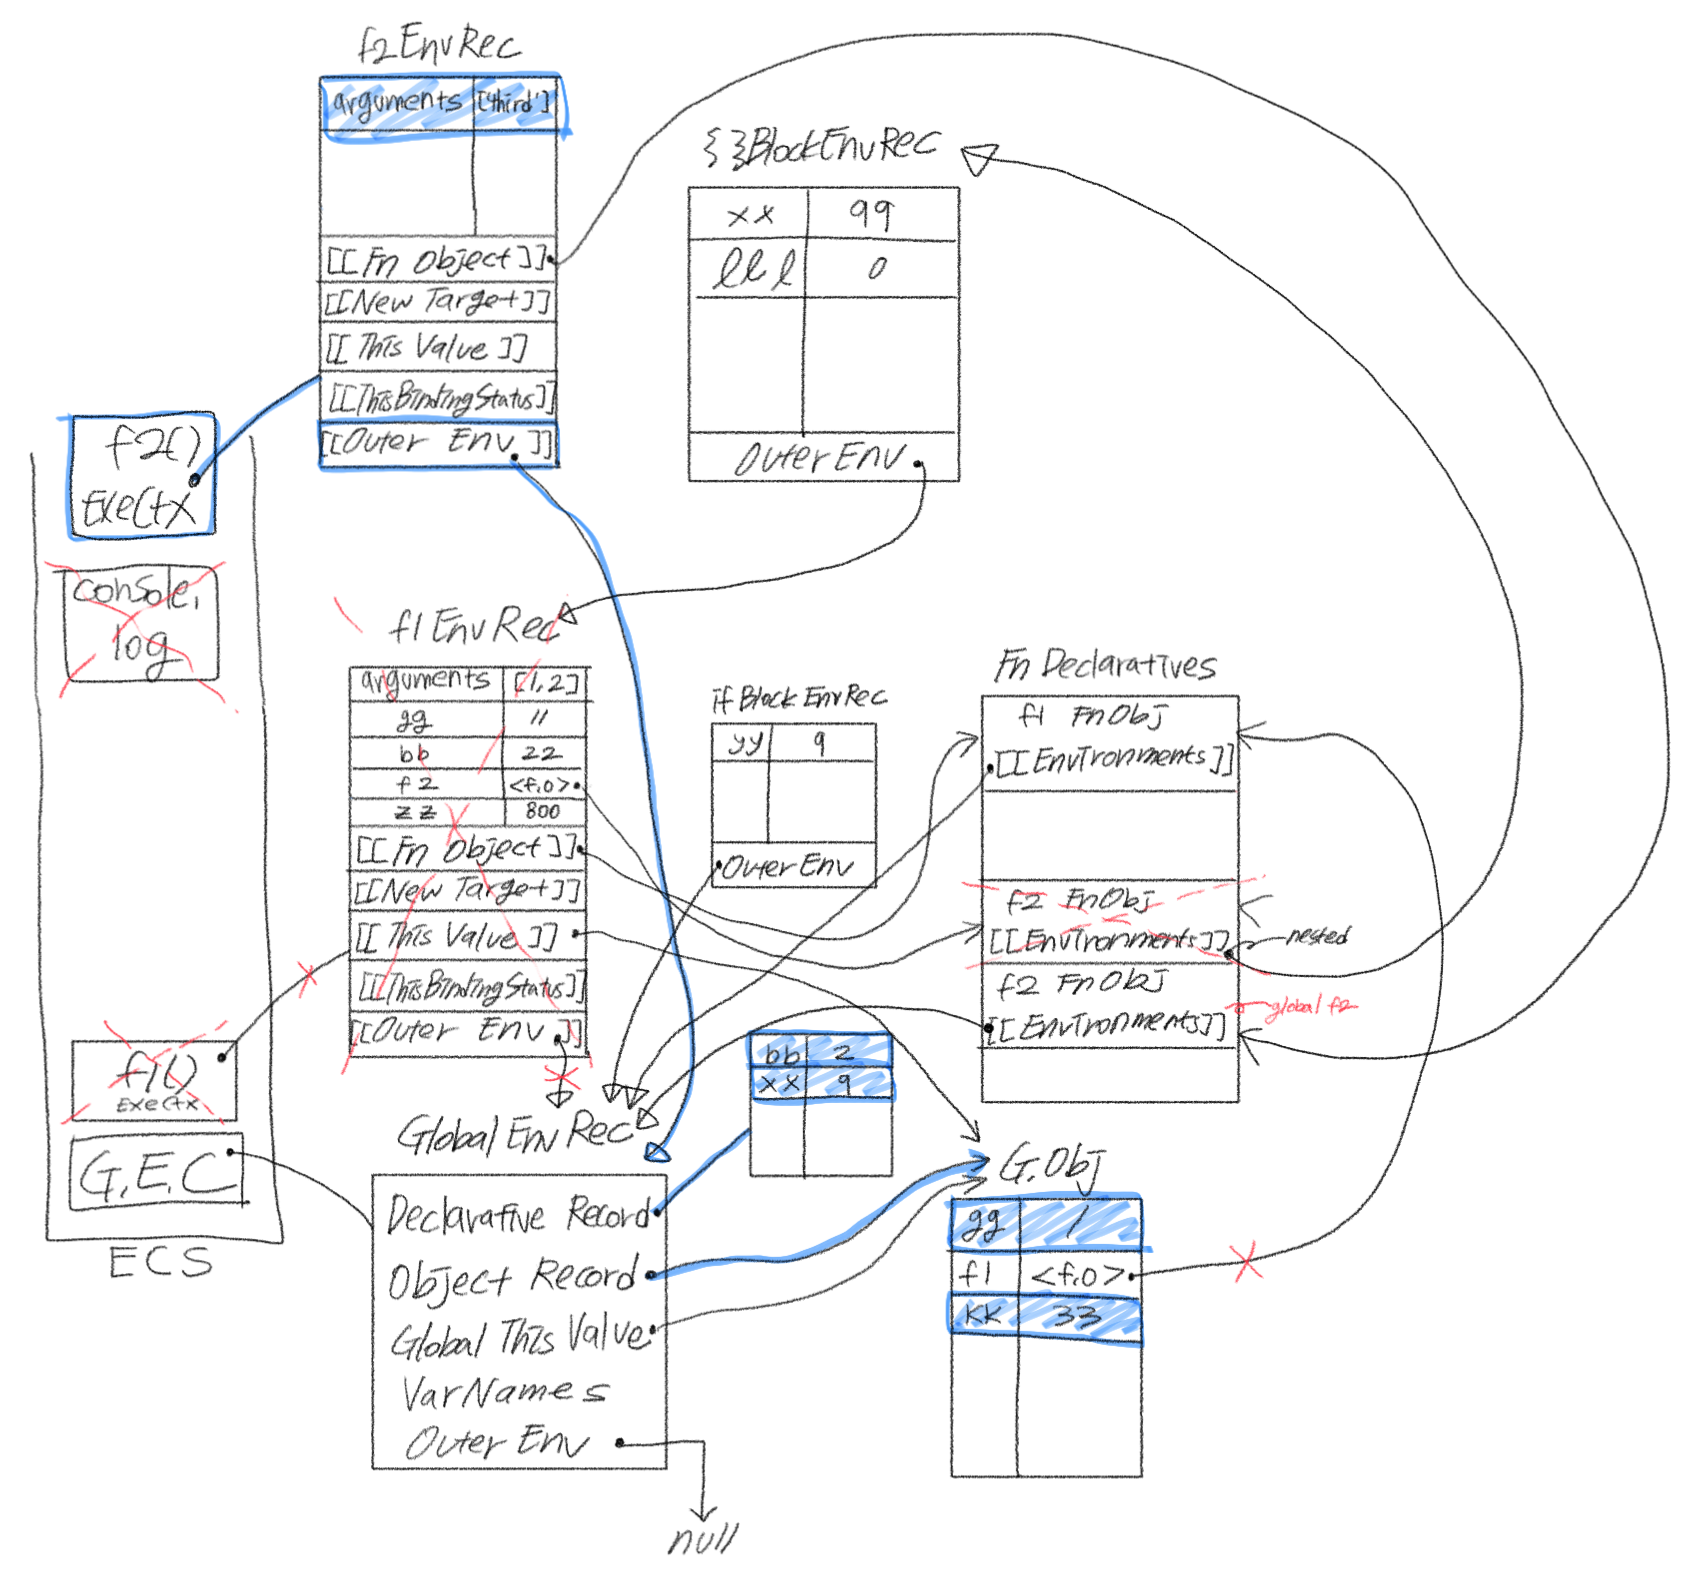 f2EnvRec
arguments ['third']
[[Fn Object]]
[[New Target]]
[[This Value]]
[[ThisBindingStatus]]
[[Outer Env]]
{ }BlockEnvRec
xx 99
lll 0
OuterEnv
f2()
ExeCtx
console.
log
f1()
ExeCtx
G.E.C
ECS
f1EnvRec
arguments [1,2]
gg 11
bb 22
f2 <f.o>
zz 800
[[Fn Object]]
[[New Target]]
[[This Value]]
[[ThisBindingStatus]]
[[Outer Env]]
if Block EnvRec
yy 9
OuterEnv
Fn Declaratives
f1 FnObj
[[EnvIronments]]
f2 FnObj
[[EnvIronments]]
nested
f2 FnObj
[[EnvIronments]]
global f2
bb 2
xx 9
Global Env Rec
Declarative Record
Object Record
Global This Value
VarNames
Outer Env
null
G.Obj
gg 1
f1 <f.o>
kk 33